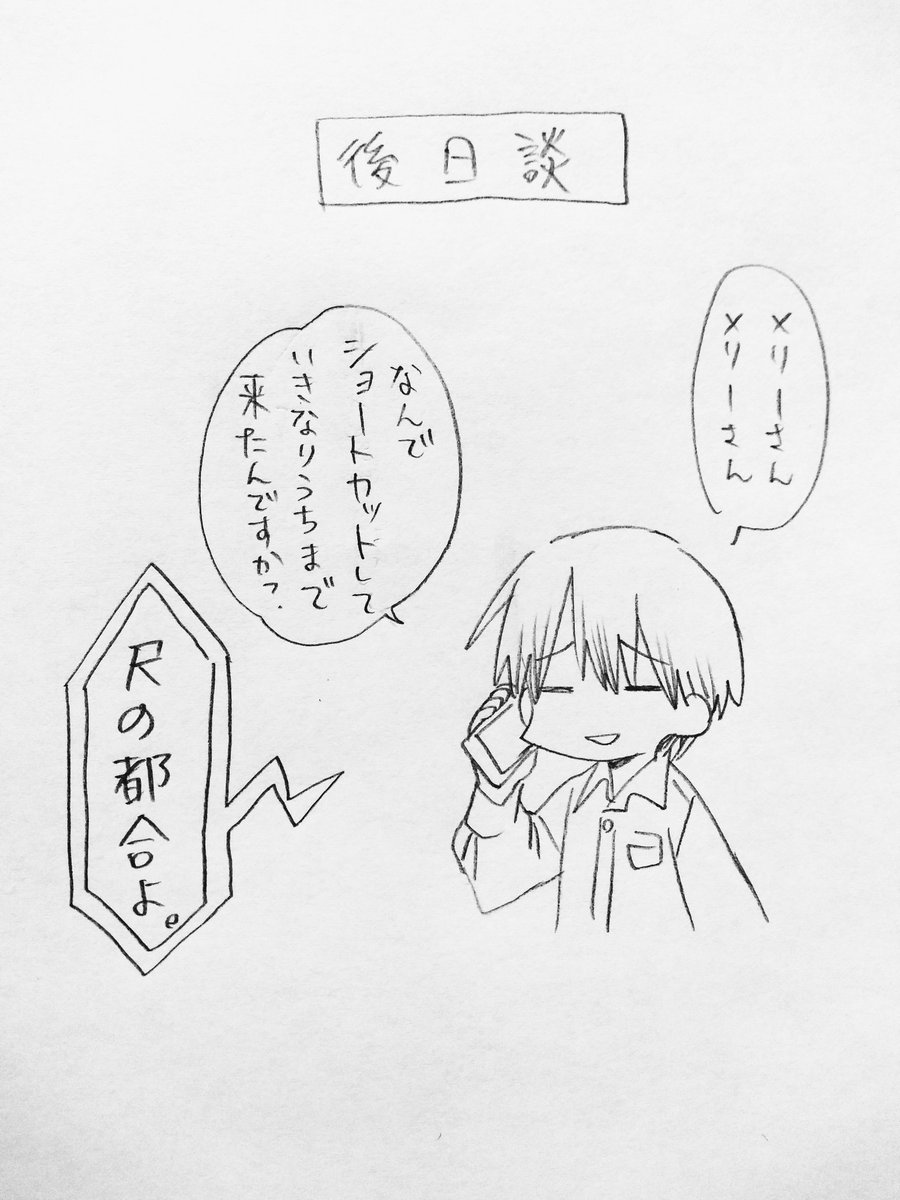 後日談
メリーさん
メリーさん
なんで
ショートカットして
いきなりうちまで
来たんですか?
尺の都合よ。